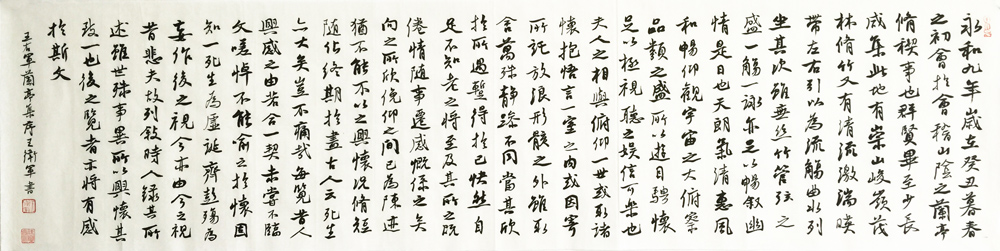 永和九年歲在癸丑暮春
之初會於會稽山陰之蘭亭
脩禊事也群賢畢至少長
咸集此地有崇山峻領茂
林脩竹又有清流激湍暎
帶左右引以為流觴曲水列
坐其次雖無絲竹管弦之
盛一觴一詠亦足以暢敘幽
情是日也天朗氣清惠風
和暢仰觀宇宙之大俯察
品類之盛所以遊目騁懷
足以極視聽之娛信可樂也
夫人之相與俯仰一世或取諸
懷抱悟言一室之內或因寄
所託放浪形骸之外雖取
舍萬殊靜躁不同當其欣
於所遇暫得於己快然自
足不知老之將至及其所之既
倦情隨事遷感慨係之矣
向之所欣俛仰之間已為陳迹
猶不能不以之興懷況脩短
隨化終期於盡古人云死生
亦大矣豈不痛哉每覽昔人
興感之由若合一契未嘗不臨
文嗟悼不能喻之於懷固
知一死生為虛誕齊彭殤為
妄作後之視今亦由今之視
昔悲夫故列敘時人錄其所
述雖世殊事異所以興懷其
致一也後之覽者亦將有感
於斯文
王右軍蘭亭集序王衛軍書